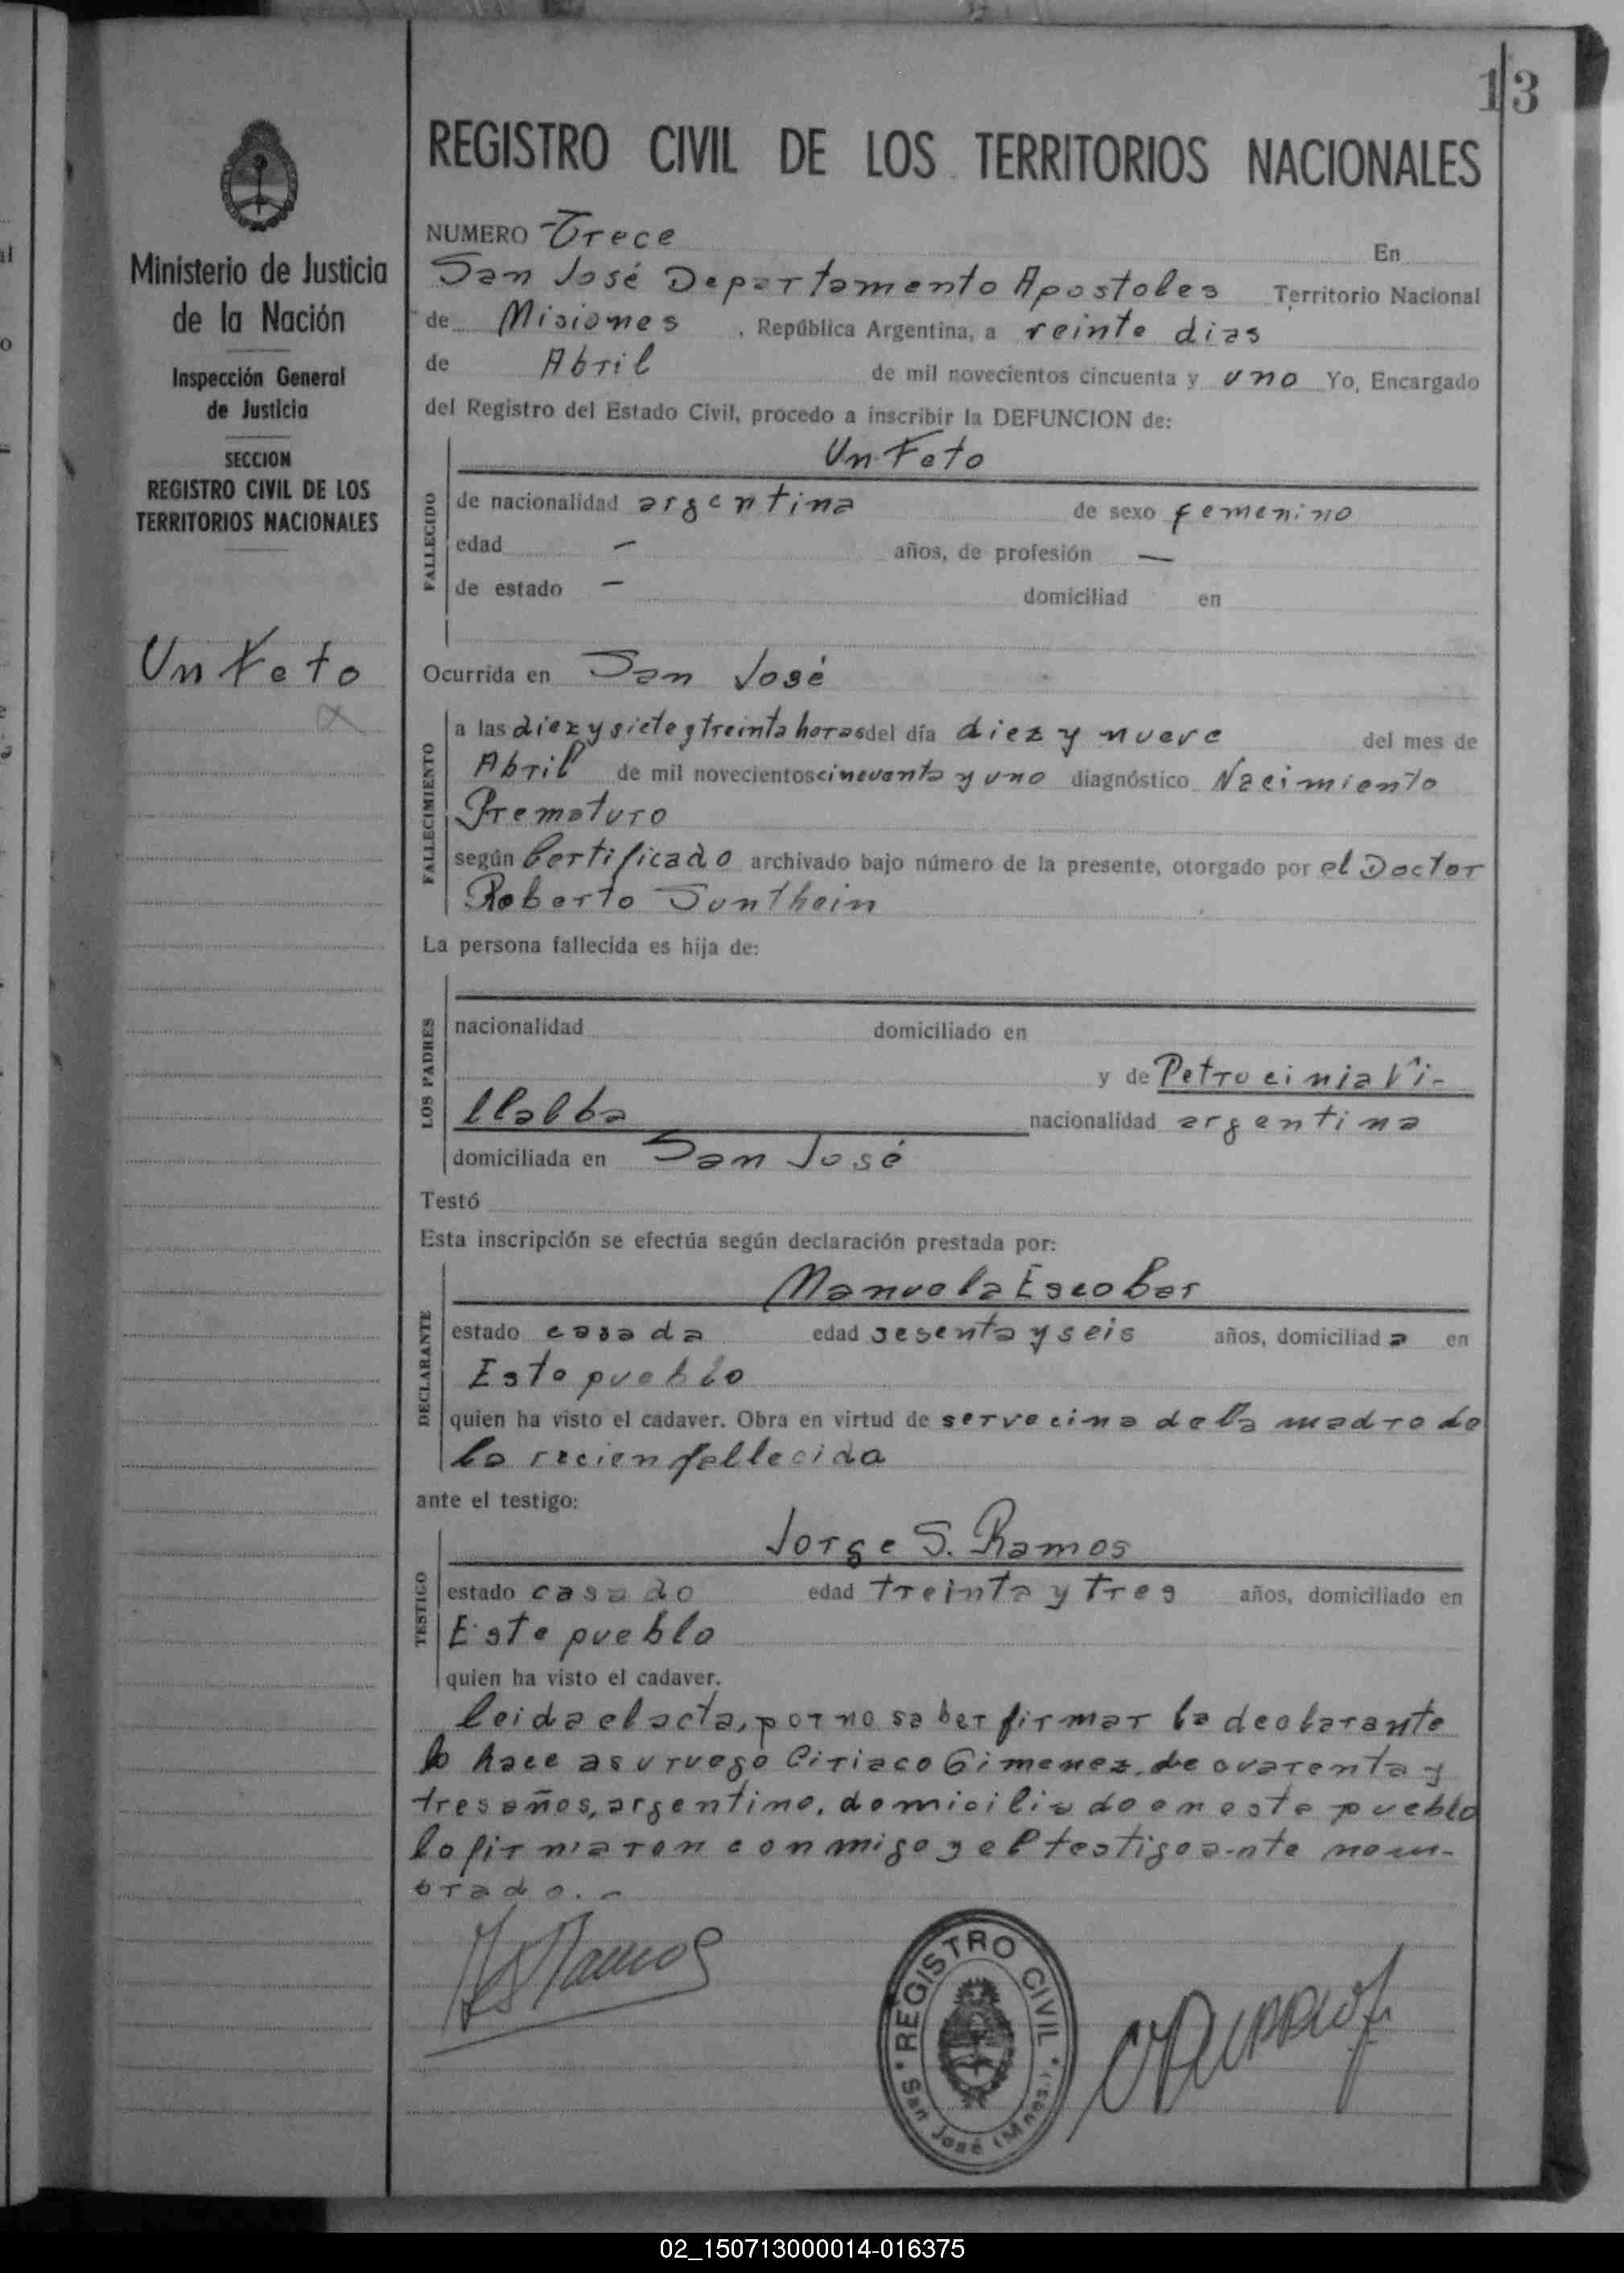 13
REGISTRO CIVIL DE LOS TERRITORIOS NACIONALES
Ministerio de Justicia
de la Nación
Inspección General
de Justicia
SECCION
REGISTRO CIVIL DE LOS
TERRITORIOS NACIONALES
Un Feto
NUMERO Trece En
San José Departamento Apostoles Territorio Nacional
de Misiones , República Argentina, a veinte dias
de Abril de mil novecientos cincuenta y uno Yo, Encargado
del Registro del Estado Civil, procedo a inscribir la DEFUNCION de:
Un Feto
FALLECIDO
de nacionalidad argentina de sexo femenino
edad — años, de profesión —
de estado — domiciliad en
Ocurrida en San José
FALLECIMIENTO
a las diez y siete y treinta horas del día diez y nueve del mes de
Abril de mil novecientos cincuenta y uno diagnóstico Nacimiento
Prematuro
según Certificado archivado bajo número de la presente, otorgado por el Doctor
Roberto Sunthein
La persona fallecida es hija de:
LOS PADRES
nacionalidad domiciliado en
y de Petrocinia Vi-
llalba nacionalidad argentina
domiciliada en San José
Testó
Esta inscripción se efectúa según declaración prestada por:
Manuela Escobar
DECLARANTE
estado casada edad sesenta y seis años, domiciliad a en
Este pueblo
quien ha visto el cadaver. Obra en virtud de ser vecina de la madre de
la recien fallecida
ante el testigo:
Jorge S. Ramos
TESTIGO
estado casado edad treinta y tres años, domiciliado en
Este pueblo
quien ha visto el cadaver.
Leida el acta, por no saber firmar la declarante
lo hace a su ruego Ciriaco Gimenez, de cuarenta y
tres años, argentino, domiciliado en este pueblo
la firmaron conmigo y el testigo ante nom-
brado. -
JSRamos
REGISTRO CIVIL
San José (Mnes.)
02_150713000014-016375